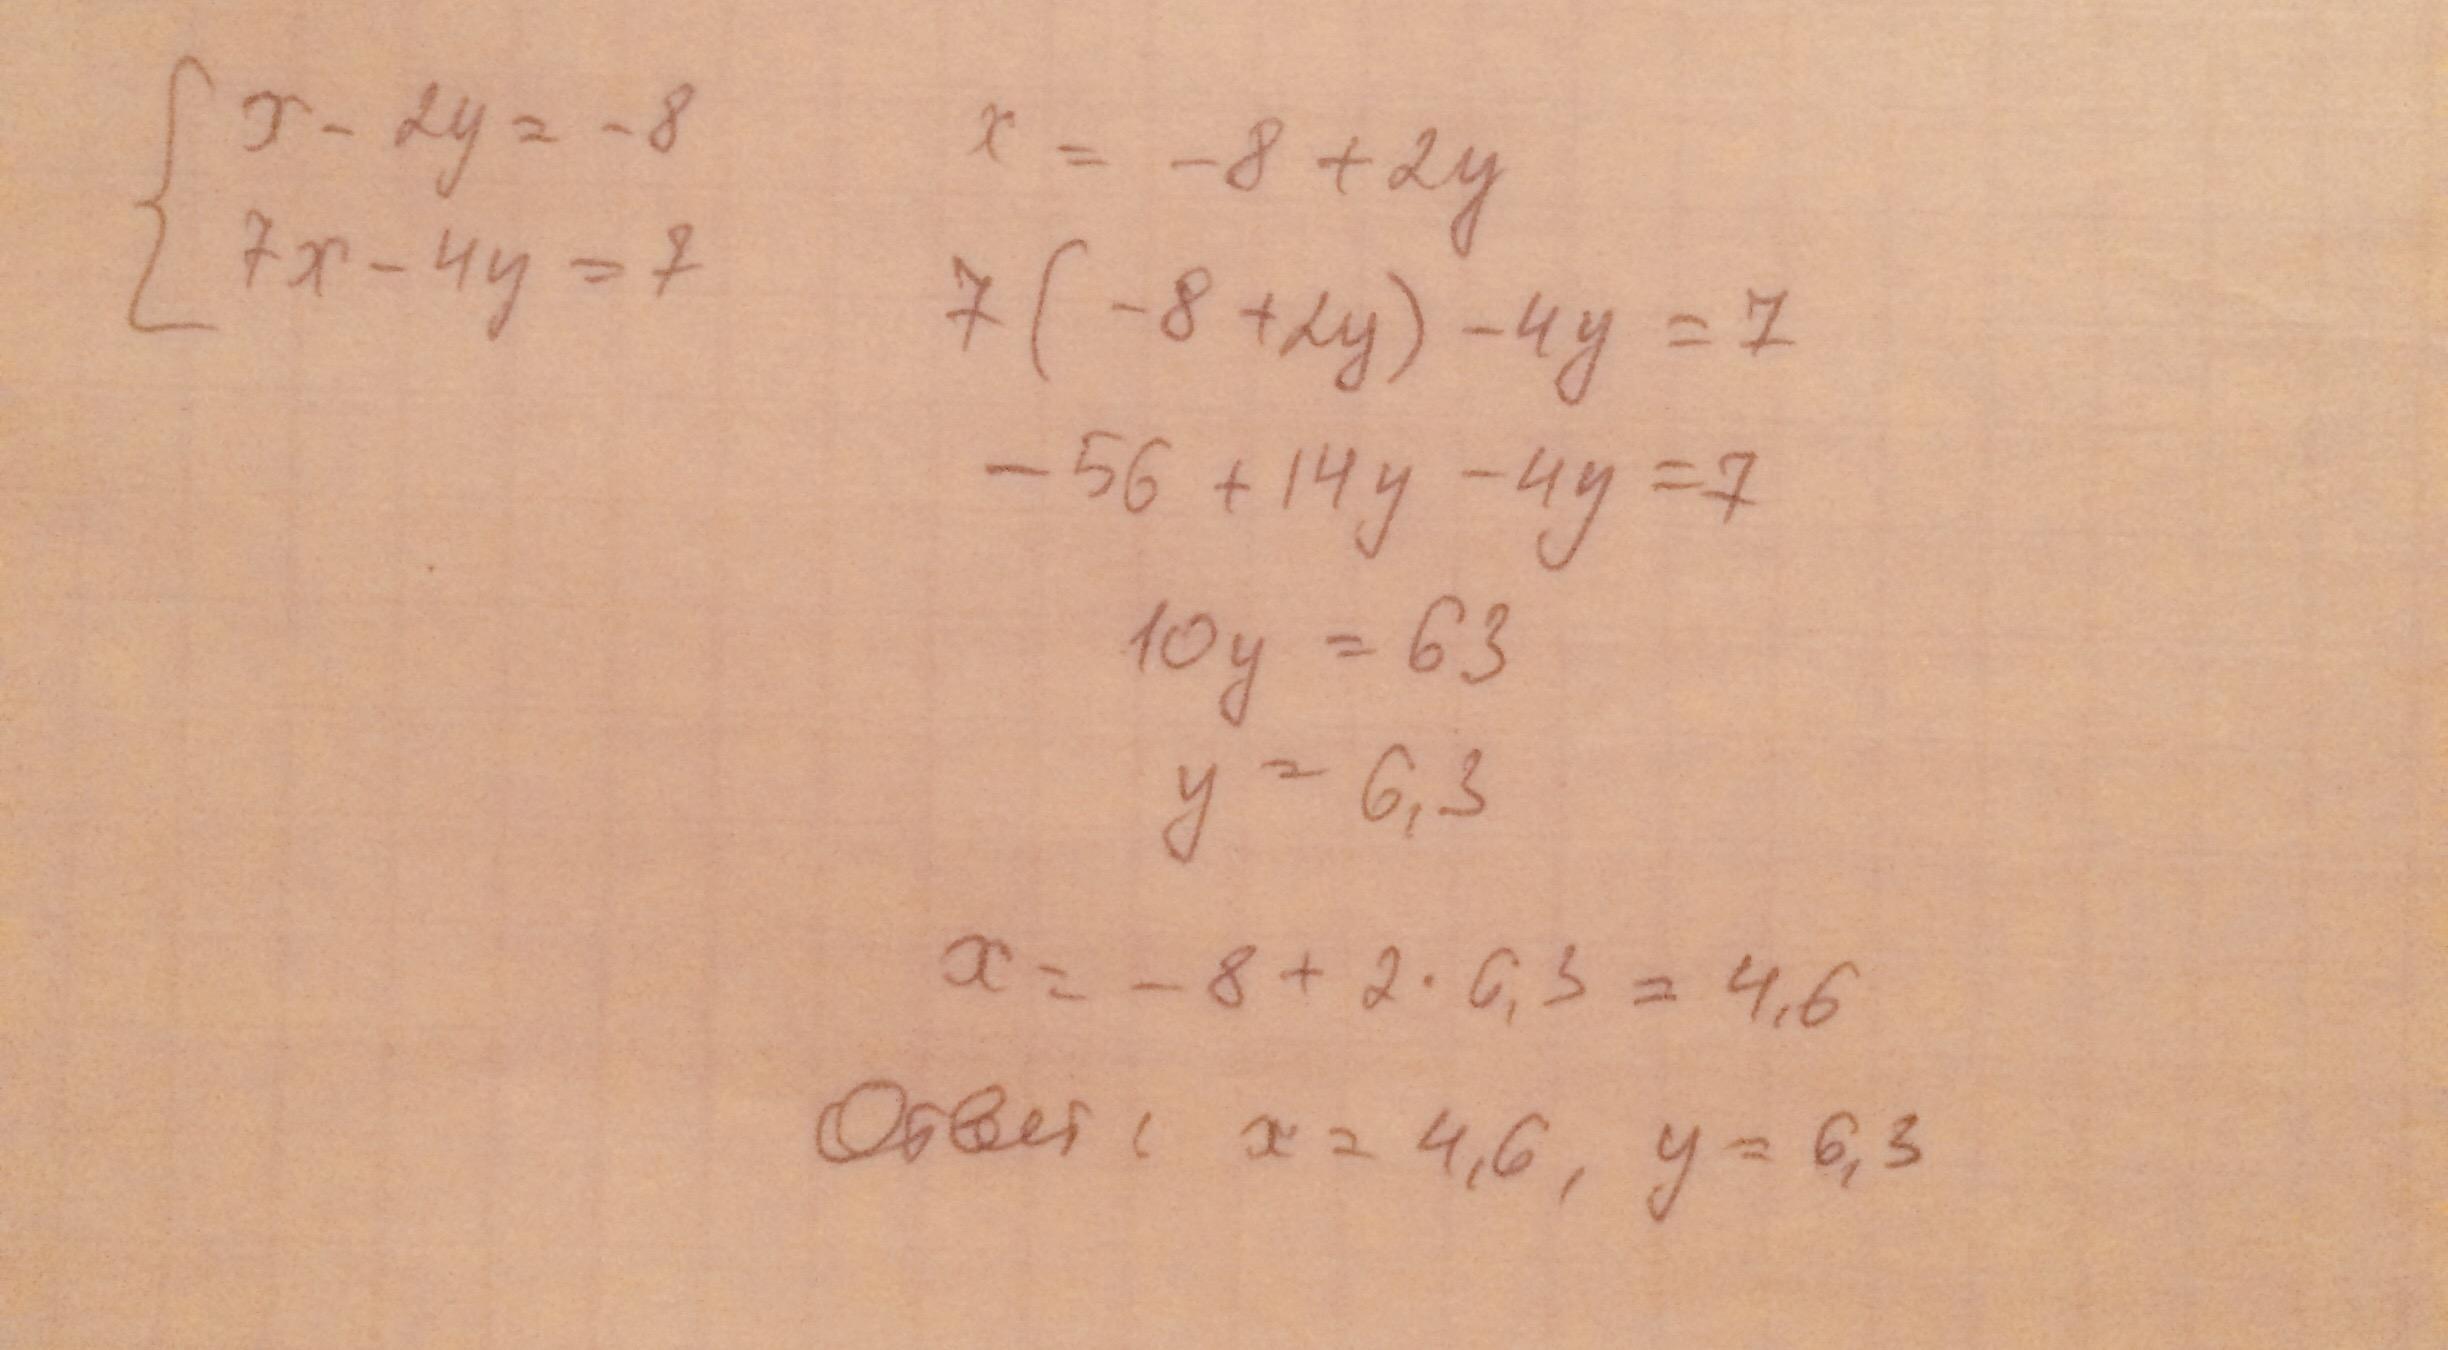 x - 2y = -8
7x - 4y = 7
x = -8 + 2y
7(-8 + 2y) - 4y = 7
-56 + 14y - 4y = 7
10y = 63
y = 6,3
x = -8 + 2 · 6,3 = 4,6
Ответ: x = 4,6, y = 6,3